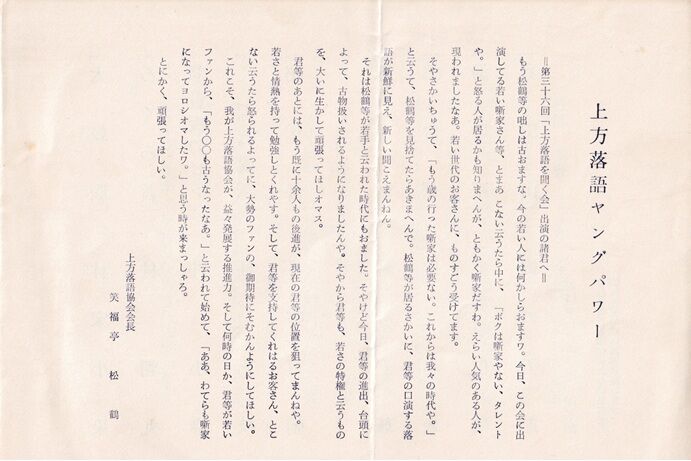 上方落語ヤングパワー
＝第三十六回「上方落語を聞く会」出演の諸君へ＝
もう松鶴等の咄しは古おますな。今の若い人には何かしらおますワ。今日、この会に出
演してる若い噺家さん等、とまあ こない云うたら中に、「ボクは噺家やない、タレント
や。」と怒る人が居るかも知りまへんが、ともかく噺家だすわ。えらい人気のある人が、
現われましたなあ。若い世代のお客さんに、ものすごう受けてます。
そやさかいちゅうて、「もう歳の行った噺家は必要ない。これからは我々の時代や。」
と云うて、松鶴等を見捨てたらあきまへんで。松鶴等が居るさかいに、君等の口演する落
語が新鮮に見え、新しい聞こえまんねん。
それは松鶴等が若手と云われた時代にもおました。そやけど今日、君等の進出、台頭に
よって、古物扱いされるようになりましたんや。そやから君等も、若さの特権と云うもの
を、大いに生かして頑張ってほしオマス。
君等のあとには、もう既に十余人もの後進が、現在の君等の位置を狙ってまんねや。
若さと情熱を持って勉強しとくれやす。そして、君等を支持してくれはるお客さん、とこ
ない云うたら怒られるよってに、大勢のファンの、御期待にそむかんようにしてほしい。
これこそ、我が上方落語協会が、益々発展する推進力。そして何時の日か、君等が若い
ファンから、「もう〇〇も古うなったなあ。」と云われて始めて、「ああ、わてらも噺家
になってヨロシオマしたワ。」と思う時が来まっしゃろ。
とにかく、頑張ってほしい。
上方落語協会会長
笑福亭 松鶴